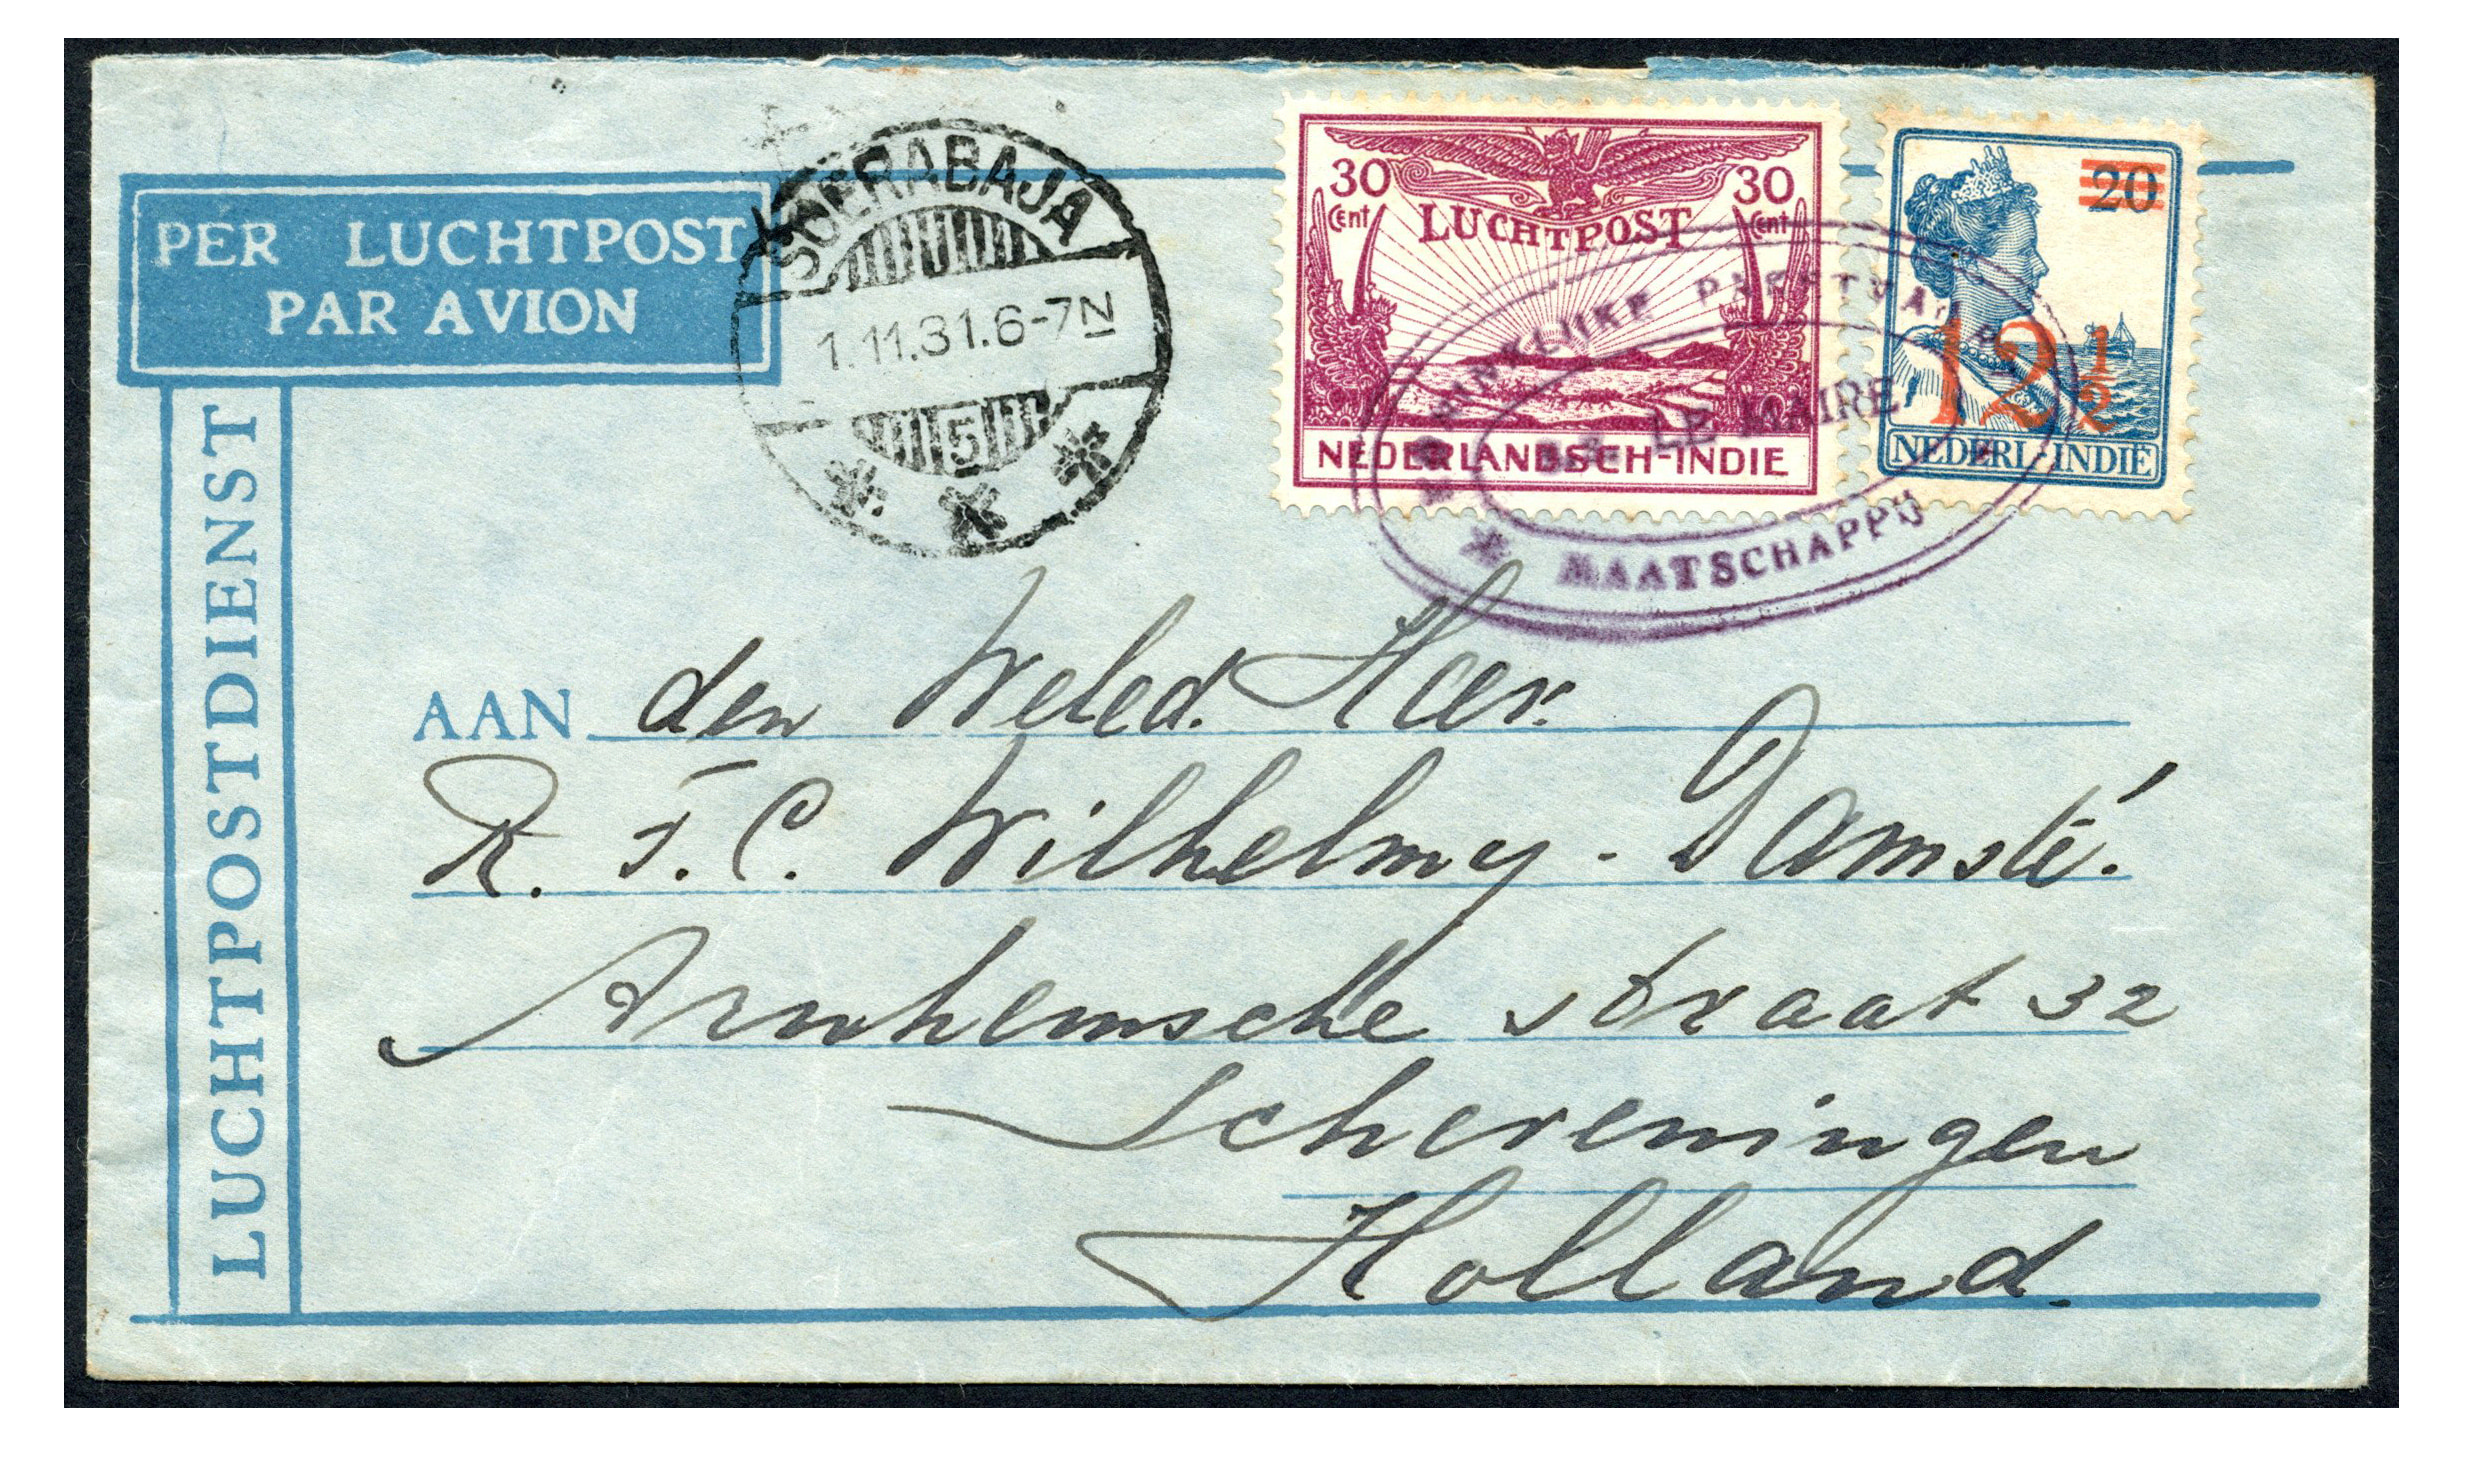 PER LUCHTPOST
PAR AVION
LUCHTPOSTDIENST
SOERABAJA
1.11.31.6-7N
5
30 30
Cent Cent
LUCHTPOST
NEDERLANDSCH-INDIE
20
12½
NEDERL-INDIË
KONINKLIJKE PAKETVAART
LE MAIRE
MAATSCHAPPIJ
AAN den Weled. Heer.
R. F. C. Wilhelmy-Damsté.
Arnhemsche straat 32
Scheveningen
Holland.